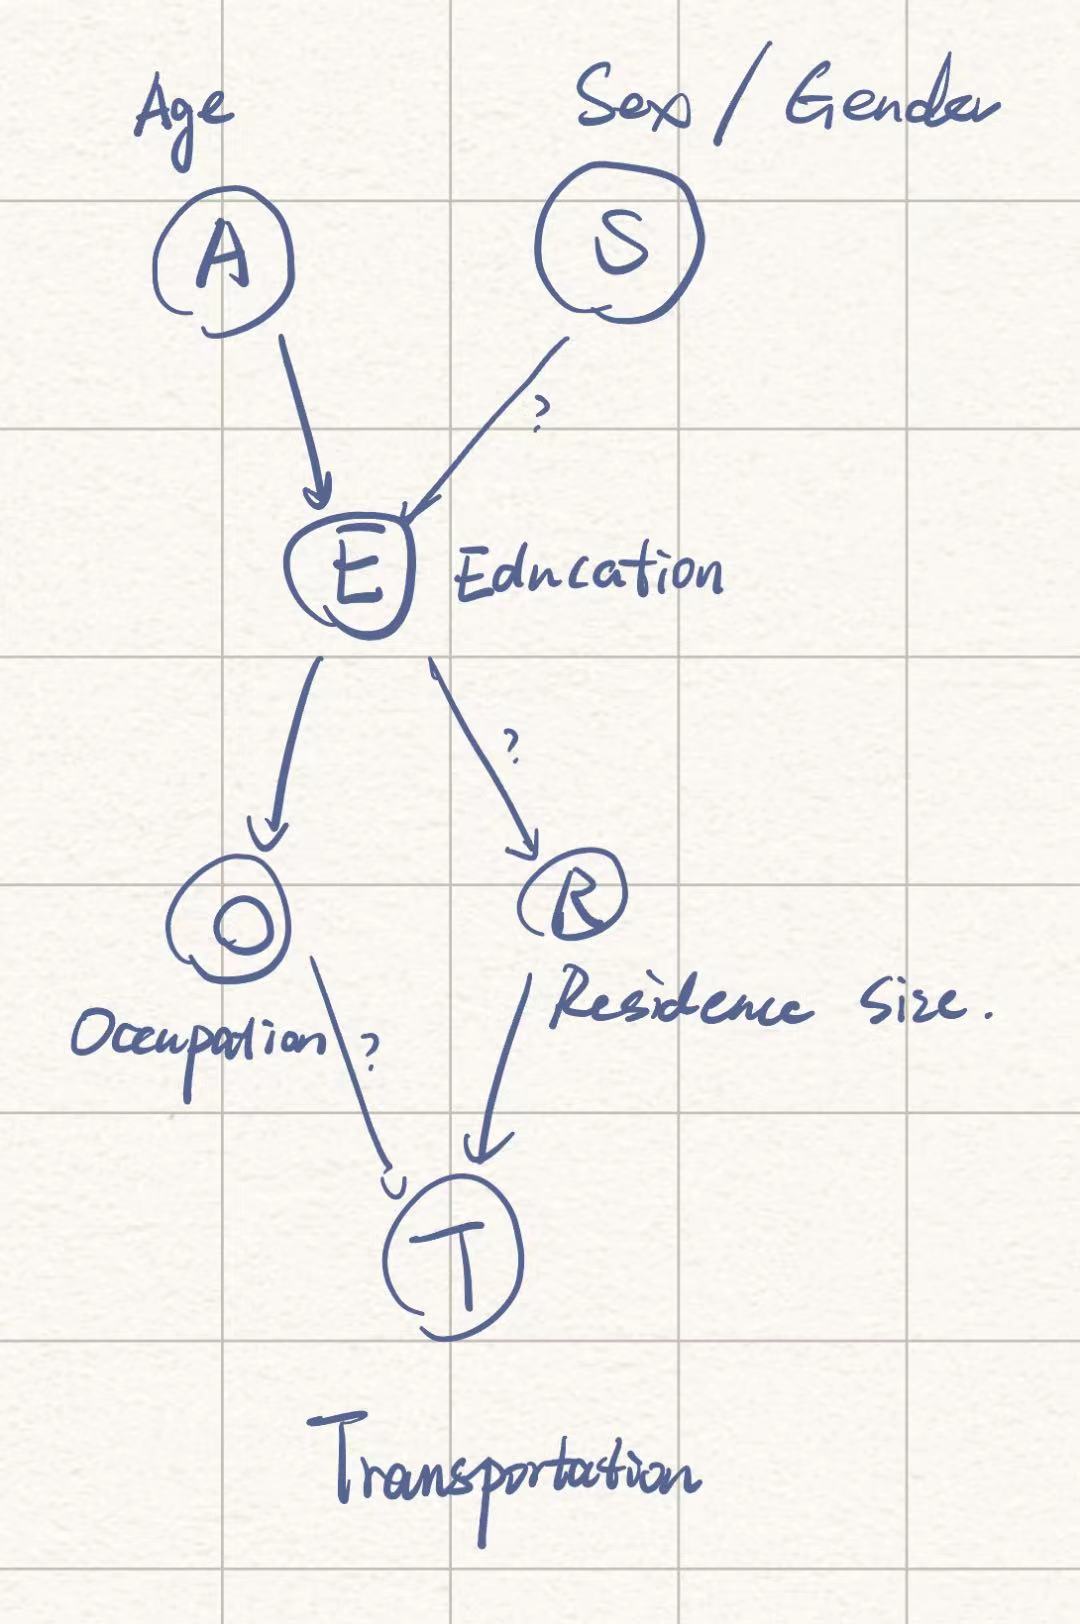 Age
Sex / Gender
A
S
?
E
Education
?
O
R
Occupation
?
Residence Size.
T
Transportation